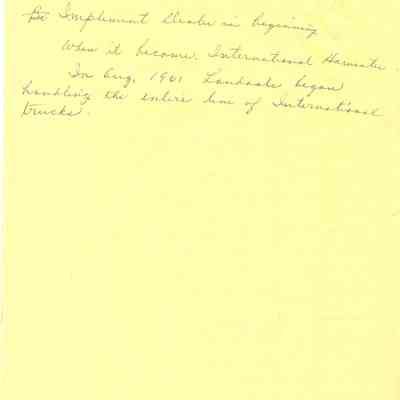 Implement Dealer in beginning
When it became International Harvester.
In Aug, 1961 Landoalt began
handling the entire line of International
trucks.